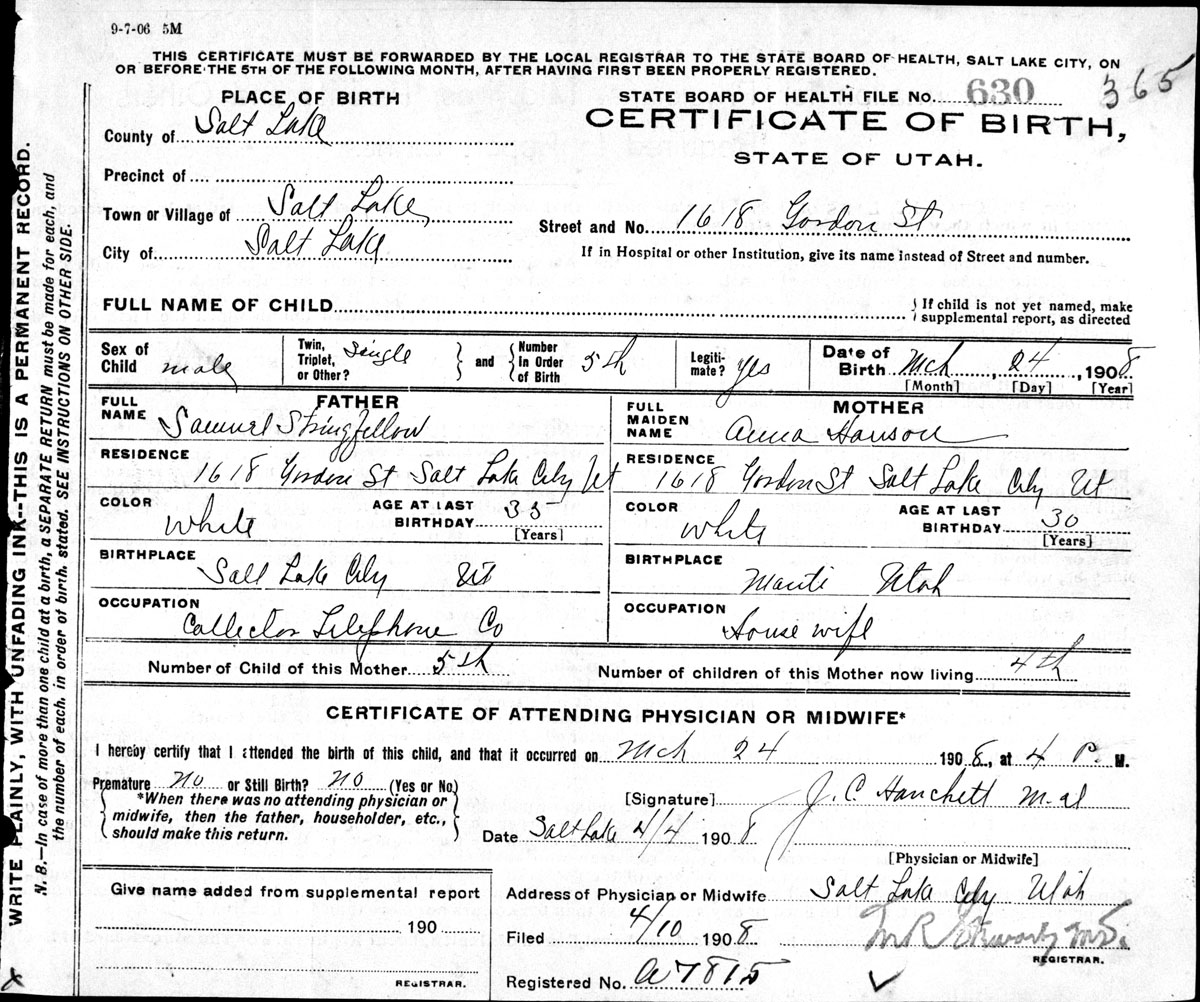 9-7-06 5M
THIS CERTIFICATE MUST BE FORWARDED BY THE LOCAL REGISTRAR TO THE STATE BOARD OF HEALTH, SALT LAKE CITY, ON
OR BEFORE THE 5TH OF THE FOLLOWING MONTH, AFTER HAVING FIRST BEEN PROPERLY REGISTERED.
PLACE OF BIRTH
County of Salt Lake
Precinct of
Town or Village of Salt Lake
City of Salt Lake
STATE BOARD OF HEALTH FILE No. 630 365
CERTIFICATE OF BIRTH,
STATE OF UTAH.
Street and No. 1618 Gordon St
If in Hospital or other Institution, give its name instead of Street and number.
FULL NAME OF CHILD
If child is not yet named, make
supplemental report, as directed
Sex of Child male
Twin, Triplet, or Other? Single and Number in Order of Birth 5th
Legitimate? yes
Date of Birth Mch 24, 1908
[Month] [Day] [Year]
FATHER
FULL NAME Samuel Stringfellow
RESIDENCE 1618 Gordon St Salt Lake City Ut
COLOR White AGE AT LAST BIRTHDAY 35
[Years]
BIRTHPLACE Salt Lake City Ut
OCCUPATION Collector Telephone Co
MOTHER
FULL MAIDEN NAME Anna Hanson
RESIDENCE 1618 Gordon St Salt Lake City Ut
COLOR White AGE AT LAST BIRTHDAY 30
[Years]
BIRTHPLACE Manti Utah
OCCUPATION House wife
Number of Child of this Mother 5th
Number of children of this Mother now living 4th
CERTIFICATE OF ATTENDING PHYSICIAN OR MIDWIFE*
I hereby certify that I attended the birth of this child, and that it occurred on Mch 24 1908, at 4 P. M.
Premature no or Still Birth? no (Yes or No)
*When there was no attending physician or
midwife, then the father, householder, etc.,
should make this return.
[Signature] J. C. Hanchett
Date Salt Lake 4/4 1908
[Physician or Midwife]
Give name added from supplemental report
190
REGISTRAR.
Address of Physician or Midwife Salt Lake City Utah
Filed 4/10 1908
REGISTRAR.
Registered No. A7815
WRITE PLAINLY, WITH UNFADING INK--THIS IS A PERMANENT RECORD.
N. B.—In case of more than one child at a birth, a SEPARATE RETURN must be made for each, and
the number of each, in order of birth, stated. SEE INSTRUCTIONS ON OTHER SIDE.